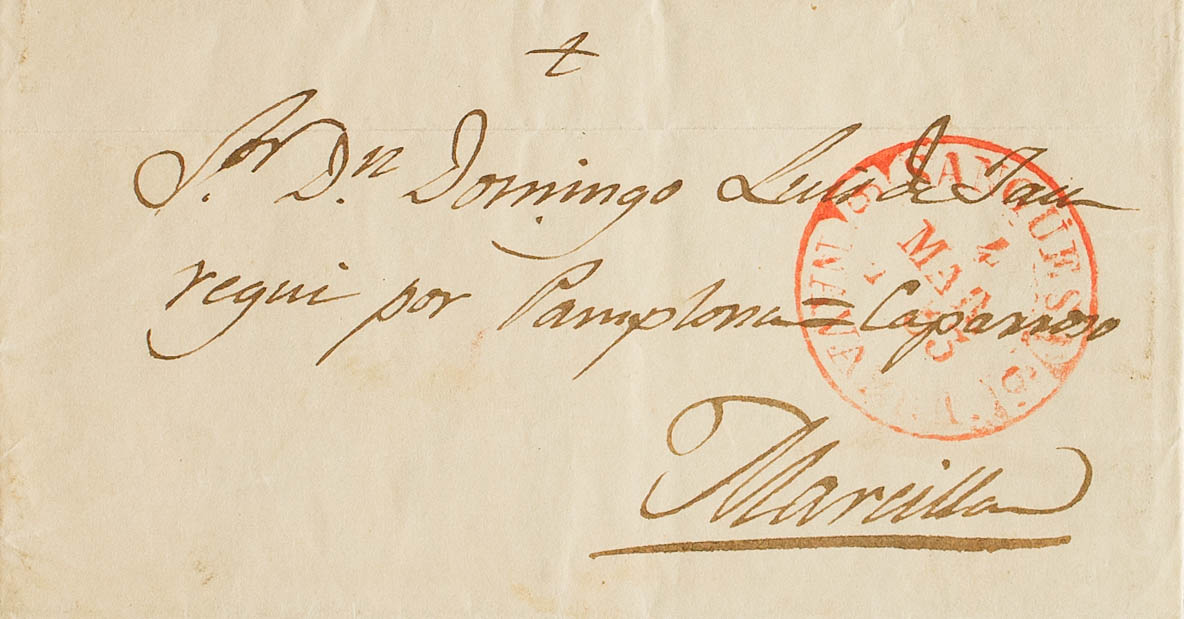 S.or D.n Domingo Luis de Jau
regui por Pamplona = Caparroso
Marcilla
SANGÜESA
NAVARRA
4
MAR